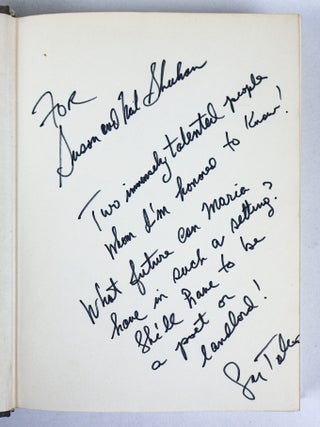 For
Susan and Neil
Two immensely talented people
whom I'm honored to know!
What future can Maria
have in such a setting?
She'll have to be
a poet or
landlord!
Gay Talese